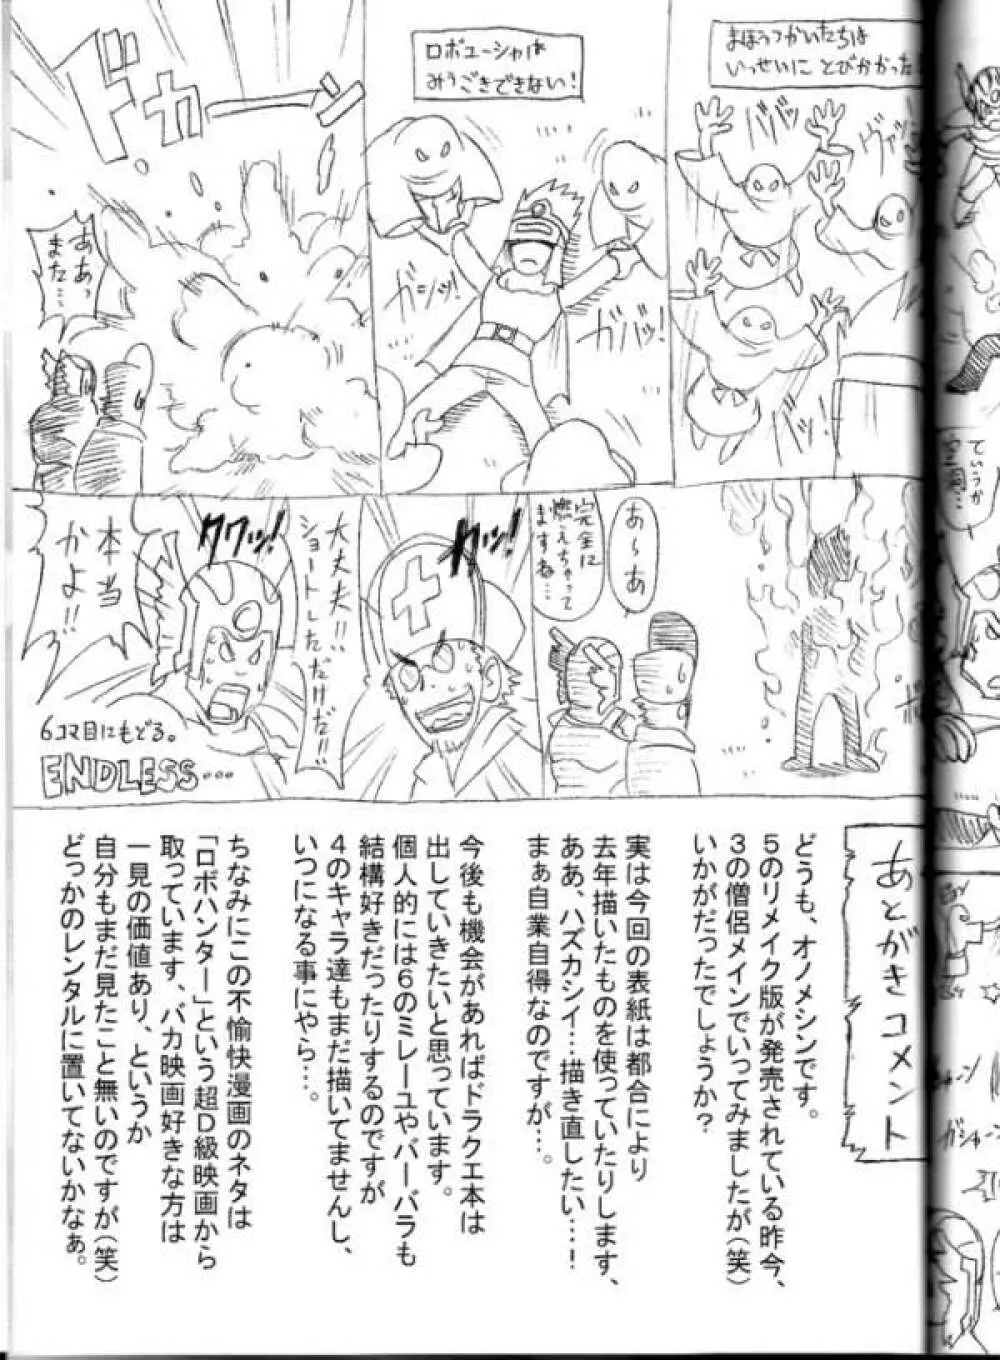 まほうつかいたちは
いっせいに とびかかった!
バババッ
ロボユーシャは
みうごきできない!
ガシッ!
ガバッ!
ドカーーン
ああっ
また…
あ〜あ
完全に
燃えちゃって
ますね…
クワッ!
大丈夫!!
ショートしただけだ!!
クワッ!
本当
かよ!!
6コマ目にもどる。
ENDLESS…
あとがきコメント
どうも、オノメシンです。
5のリメイク版が発売されている昨今、
3の僧侶メインでいってみましたが(笑)
いかがだったでしょうか?
実は今回の表紙は都合により
去年描いたものを使っていたりします、
ああ、ハズカシイ…描き直したい……!
まぁ自業自得なのですが…。
今後も機会があればドラクエ本は
出していきたいと思っています。
個人的には6のミレーユやバーバラも
結構好きだったりするのですが
4のキャラ達もまだ描いてませんし、
いつになる事にやら…。
ちなみにこの不愉快漫画のネタは
「ロボハンター」という超D級映画から
取っています、バカ映画好きな方は
一見の価値あり、というか
自分もまだ見たこと無いのですが(笑)
どっかのレンタルに置いてないかなぁ。
ていうか
ガシャーン